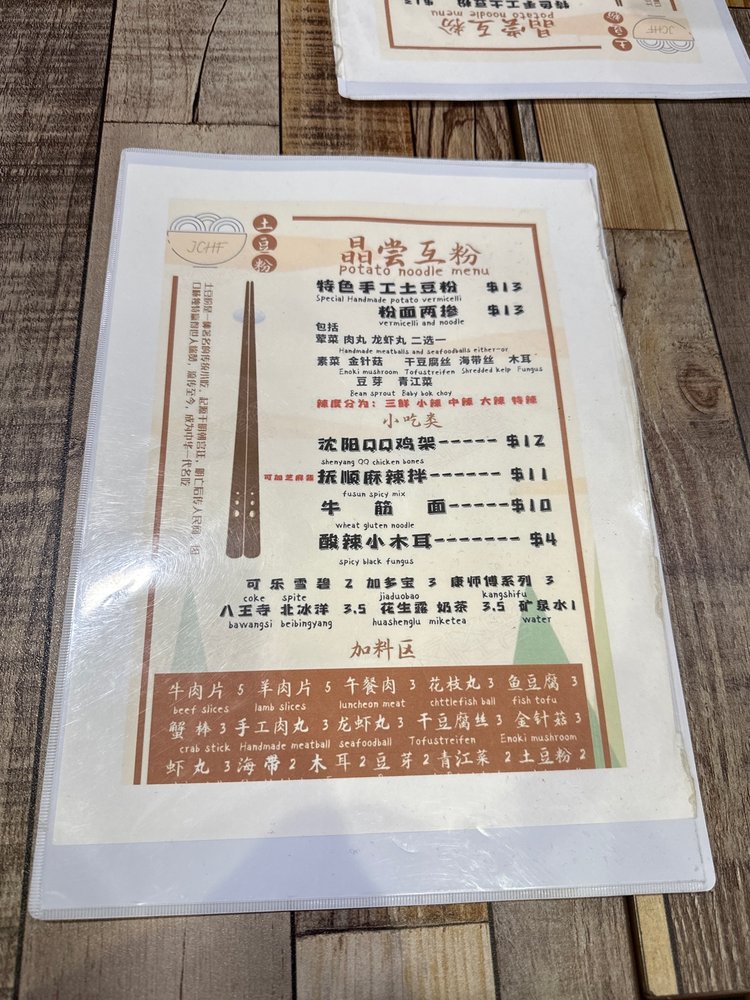 特色手工土豆粉 $13
potato noodle menu
晶尝互粉
JCHF
土豆粉
JCHF
晶尝互粉
potato noodle menu
特色手工土豆粉 $13
Special Handmade potato vermicelli
粉面两掺 $13
vermicelli and noodle
包括
荤菜 肉丸 龙虾丸 二选一
Handmade meatballs and seafoodballs either-or
素菜 金针菇 干豆腐丝 海带丝 木耳
Enoki mushroom Tofustreifen Shredded kelp Fungus
豆芽 青江菜
Bean sprout Baby bok choy
辣度分为：三鲜 小辣 中辣 大辣 特辣
小吃类
沈阳QQ鸡架----- $12
shenyang QQ chicken bones
可加芝麻酱 抚顺麻辣拌------ $11
fusun spicy mix
牛筋面----$10
wheat gluten noodle
酸辣小木耳------- $4
spicy black fungus
可乐 雪碧 2 加多宝 3 康师傅系列 3
coke spite jiaduobao kangshifu
八王寺 北冰洋 3.5 花生露 奶茶 3.5 矿泉水1
bawangsi beibingyang huashenglu miketea water
加料区
牛肉片 5 羊肉片 5 午餐肉 3 花枝丸 3 鱼豆腐 3
beef slices lamb slices luncheon meat chttlefish ball fish tofu
蟹棒 3 手工肉丸 3 龙虾丸 3 干豆腐丝 3 金针菇 3
crab stick Handmade meatball seafoodball Tofustreifen Enoki mushroom
虾丸 3 海带 2 木耳 2 豆芽 2 青江菜 2 土豆粉 2